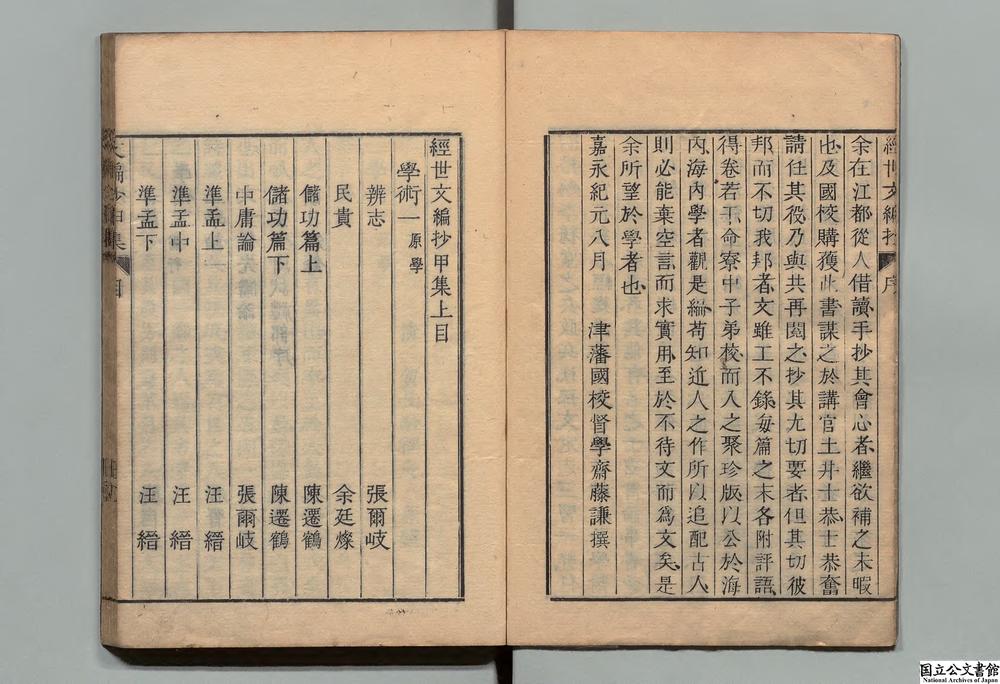 經世文編抄 序
余在江都從人借讀手抄其會心者繼欲補之未暇
也及國校購獲此書謀之於講官土井士恭士恭奮
請任其役乃與共再閱之抄其尤切要者但其切彼
邦而不切我邦者文雖工不錄每篇之末各附評語
得卷若干命寮中子弟校而入之聚珍版以公於海
內海內學者觀是編苟知近人之作所以追配古人
則必能棄空言而求實用至於不待文而爲文矣是
余所望於學者也
嘉永紀元八月 津藩國校督學齋藤謙撰
經世文編抄甲集上目
學術一 原學
辨志 張爾岐
民貴 余廷燦
儲功篇上 陳遷鶴
儲功篇下 陳遷鶴
中庸論 張爾岐
準孟上 汪縉
準孟中 汪縉
準孟下 汪縉
文編抄甲集 目
国立公文書館
National Archives of Japan